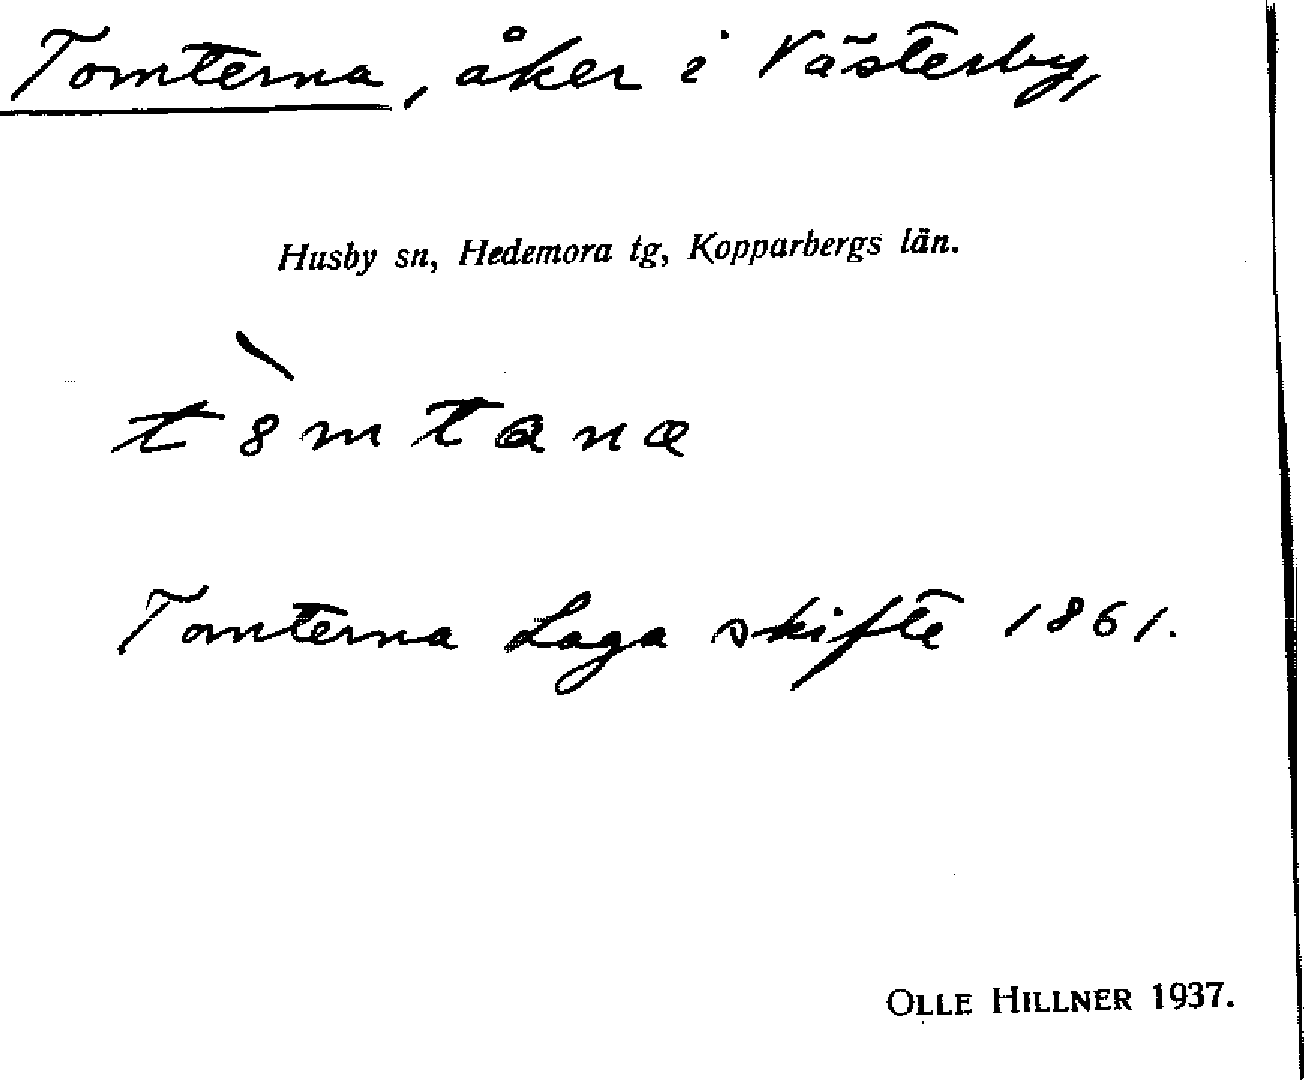 Tomterna, åker i Västerby,
Husby sn, Hedemora tg, Kopparbergs län.
t8̀mtana
Tomterna Laga skifte 1861.
OLLE HILLNER 1937.